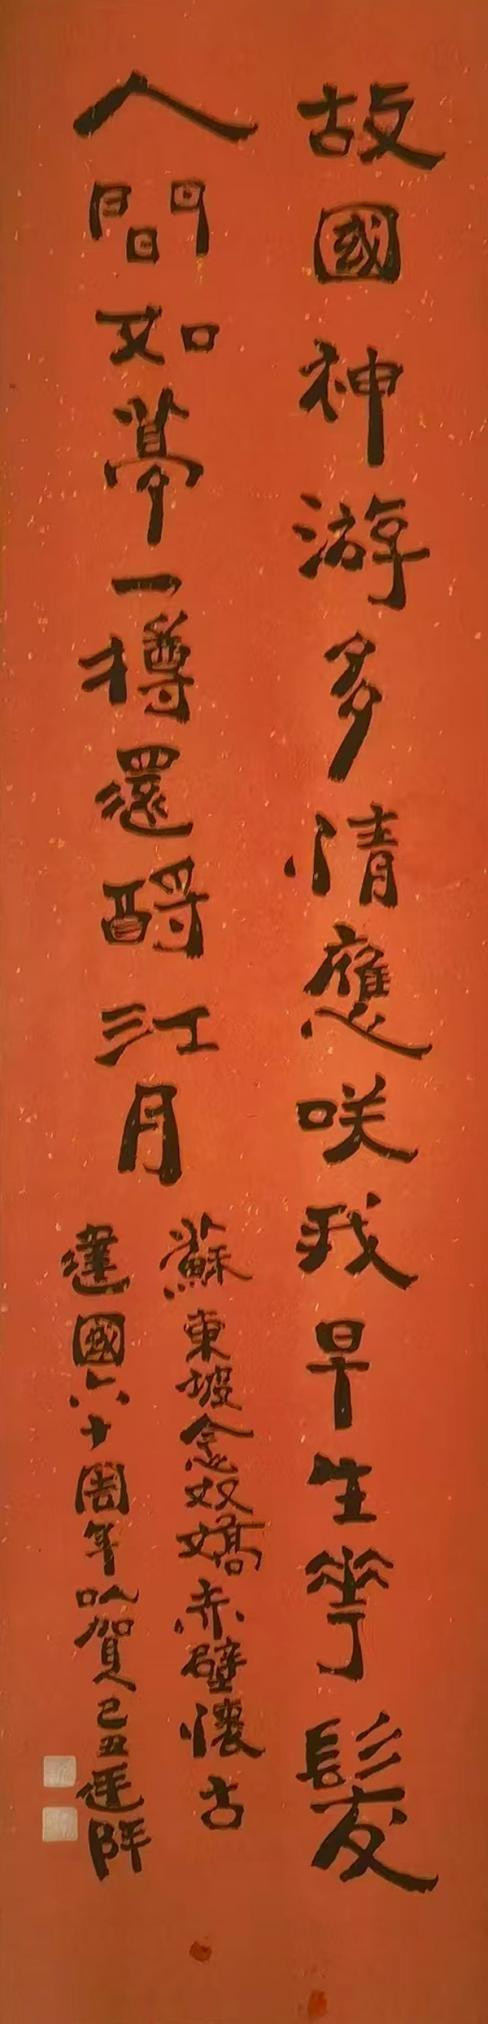 故國神游多情應咲我早生華髮
人間如夢一樽還酹江月
蘇東坡念奴嬌赤壁懷古
建國六十周年以賀己丑連陞